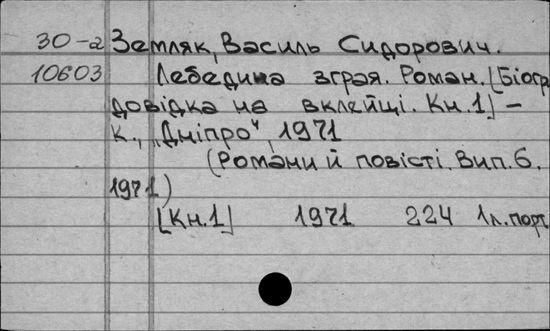 30-а Земляк, Василь Сидорович.
10603 Лебедина зграя. Роман. [Біогр
довідка на вклейці. Кн.1] –
К., „Дніпро“, 1971
(Романи й повісті. Вип. 6.
1971)
[Кн.1] 1971 224 1л.порт